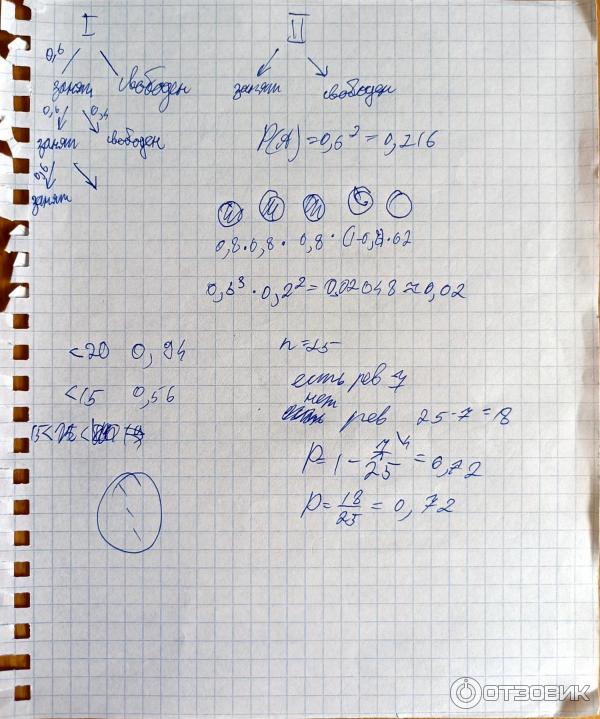 I II
0,6
занят свободен занят свободен
0,6 0,4
занят свободен P(A) = 0,6³ = 0,216
0,6
занят
0,8 · 0,8 · 0,8 · (1-0,8) · 02
0,8³ · 0,2² = 0,02048 ≈ 0,02
<20 0,94 n = 25
<15 0,56 есть рев 7
нет
рев 25-7=18
P = 1 - 7/25 = 0,72
P = 18/25 = 0,72
ОТЗОВИК